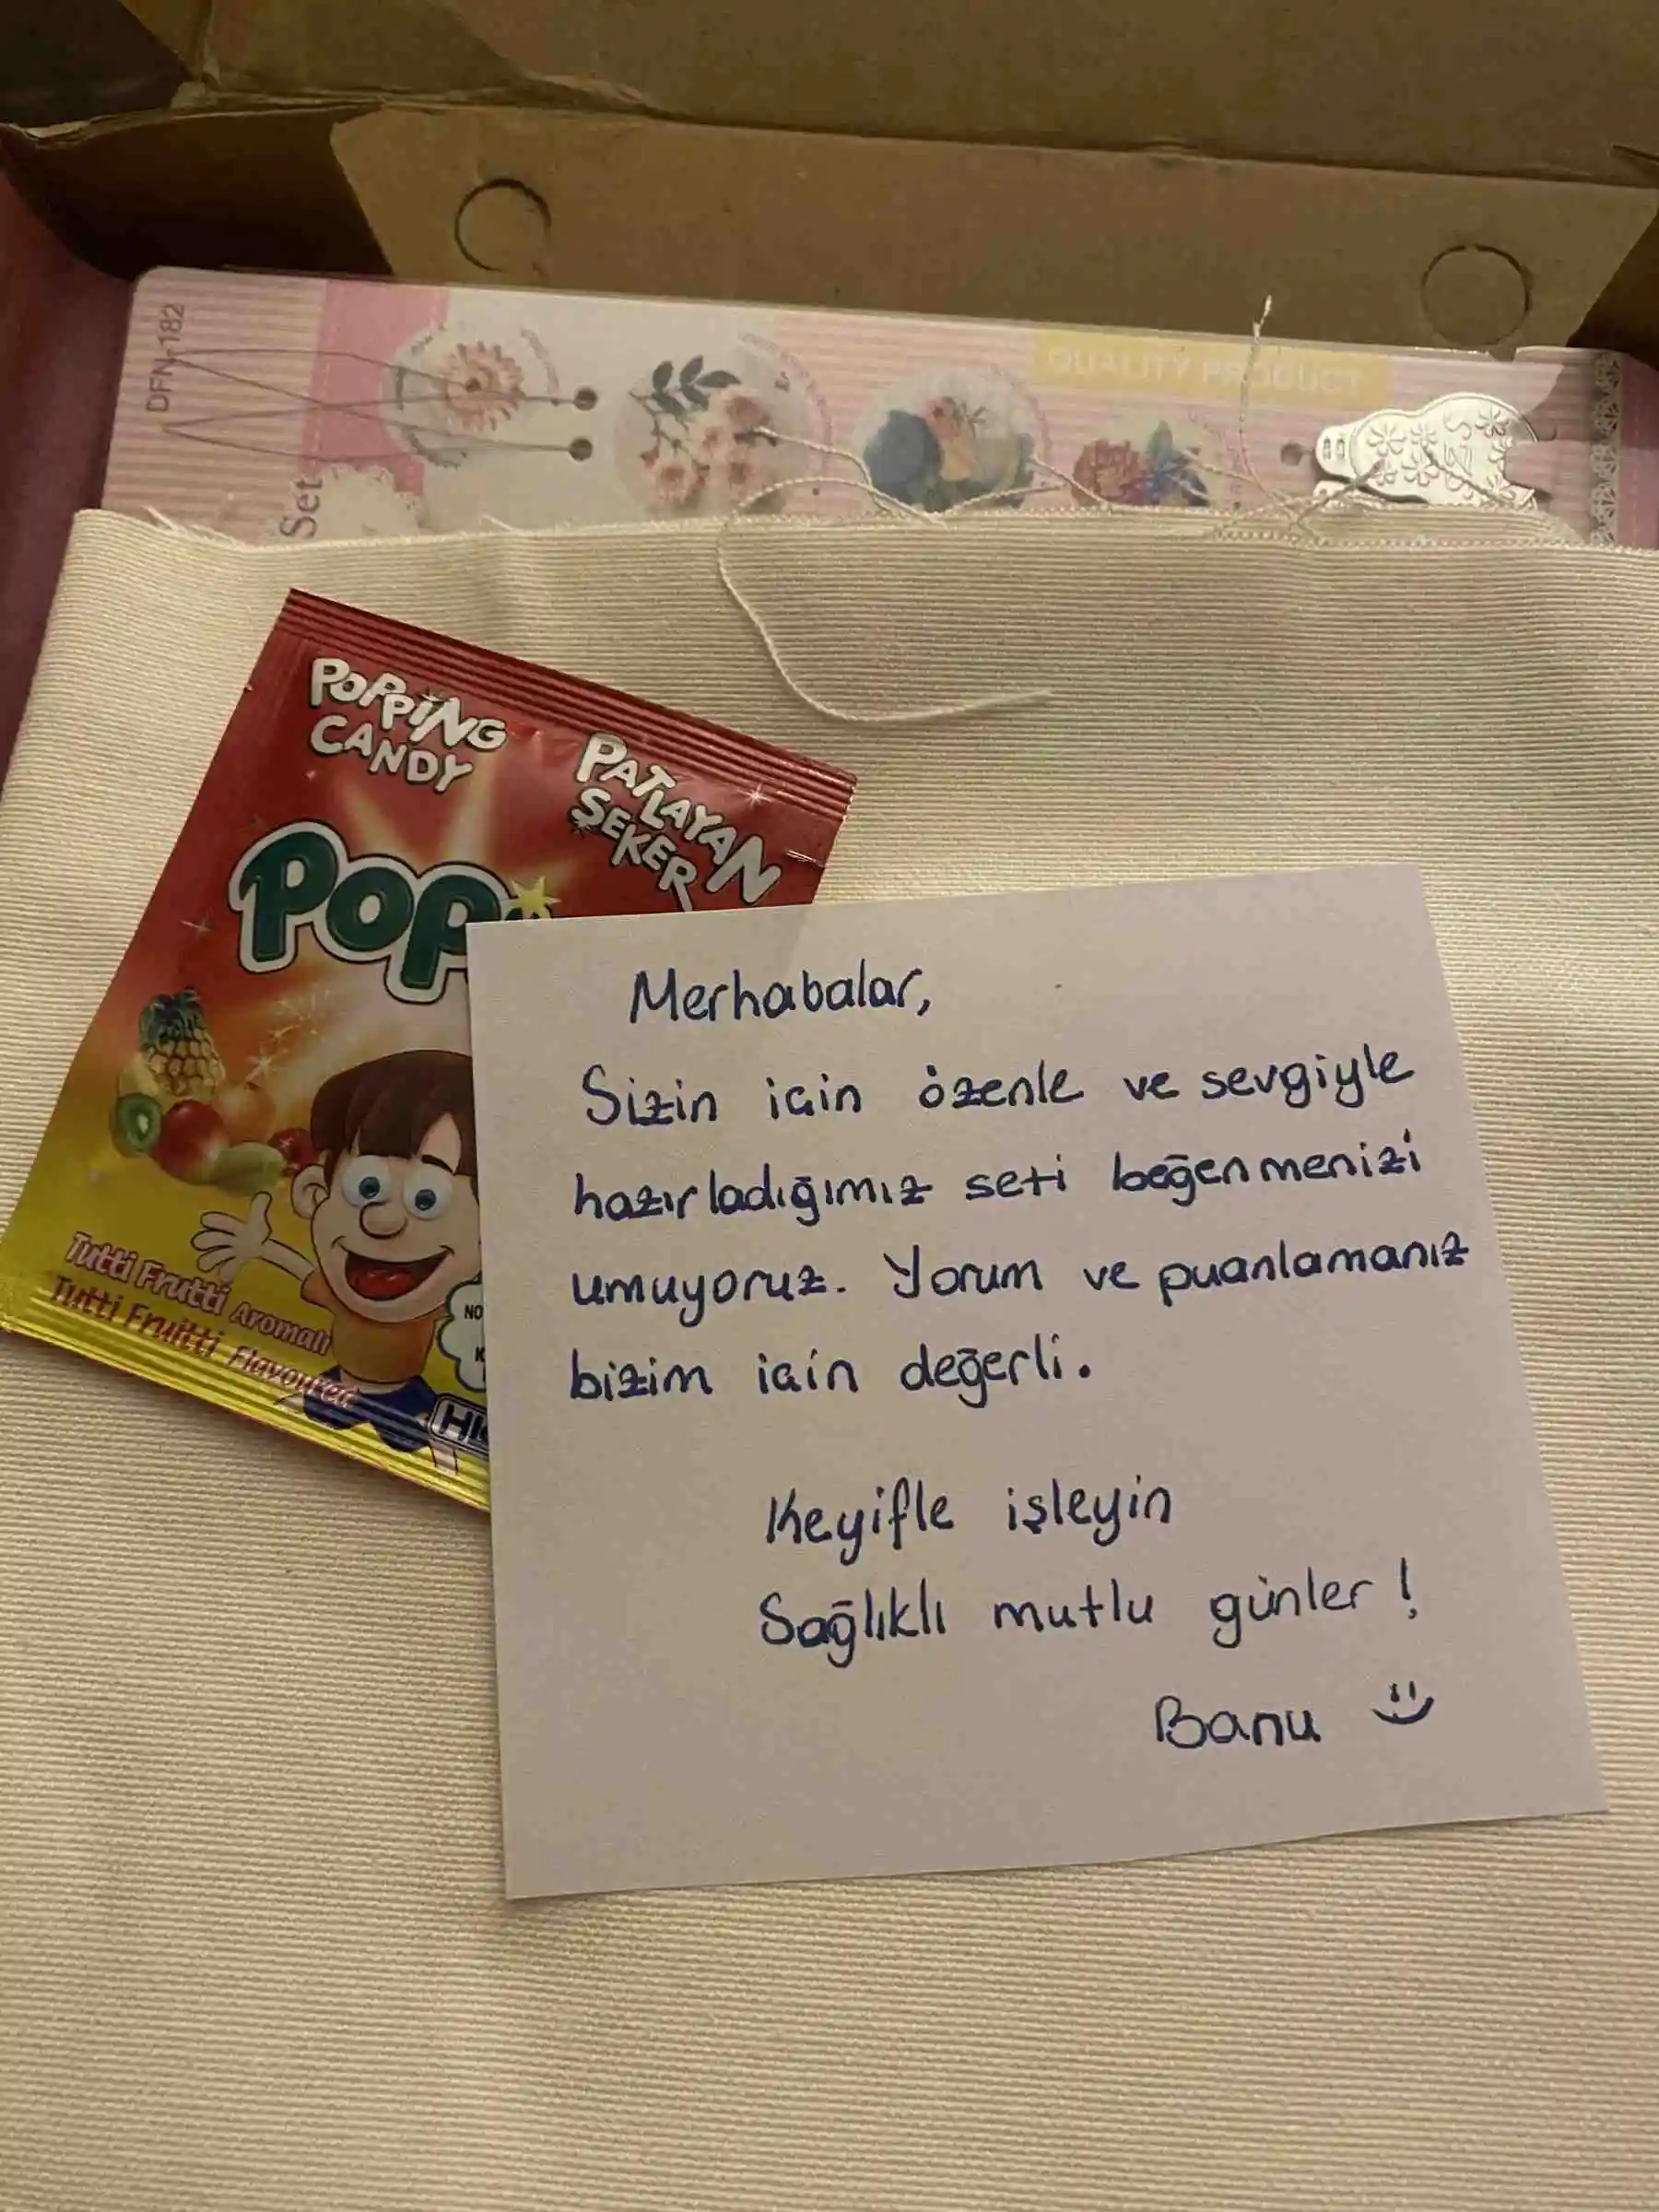 DFN-182
Set
QUALITY PRODUCT
POPPING
CANDY
PATLAYAN
ŞEKER
Pop
Tutti Frutti Aromalı
Tutti Fruitti Flavoured
NO
Merhabalar,
Sizin için özenle ve sevgiyle
hazırladığımız seti beğenmenizi
umuyoruz. Yorum ve puanlamanız
bizim için değerli.
Keyifle işleyin
Sağlıklı mutlu günler!
Banu